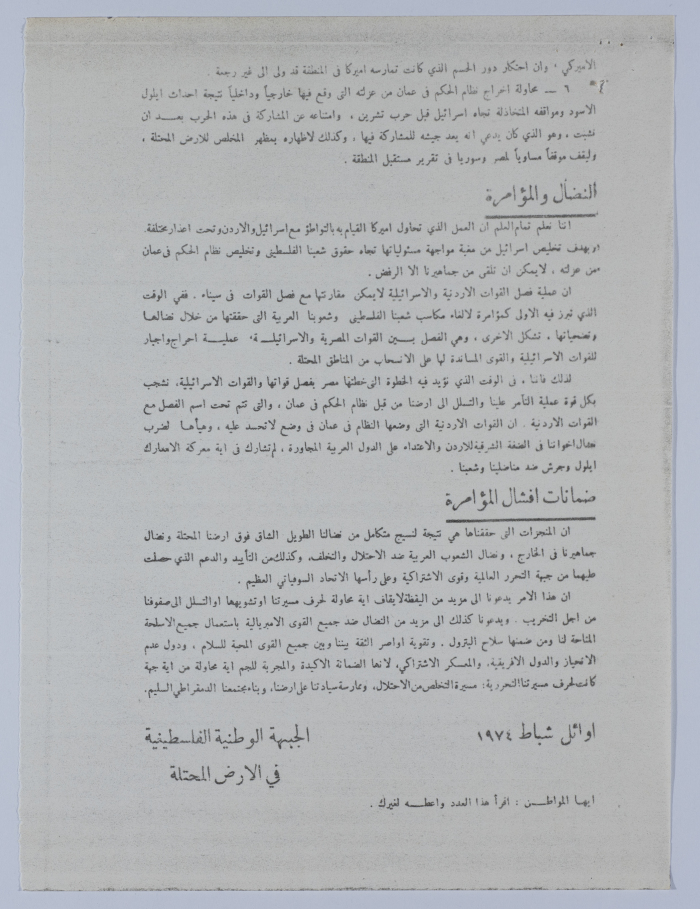 الاميركي ، وان احتكار دور الحسم الذي كانت تمارسه اميركا في المنطقة قد ولى الى غير رجعة .
٦ ــ محاولة اخراج نظام الحكم في عمان من عزلته التي وقع فيها خارجياً وداخلياً نتيجة احداث ايلول
الاسود ومواقفه المتخاذلة تجاه اسرائيل قبل حرب تشرين ، وامتناعه عن المشاركة في هذه الحرب بعــد ان
نشبت ، وهو الذي كان يدعي انه يعد جيشه للمشاركة فيها ، وكذلك لاظهاره بمظهر المخلص للارض المحتلة ،
وليقف موقفاً مساوياً لمصر وسوريا في تقرير مستقبل المنطقة .
النضال والمؤامرة
اننا نعلم تمام العلم ان العمل الذي تحاول اميركا القيام به بالتواطؤ مع اسرائيل والاردن وتحت اعذار مختلفة.
وبهدف تخليص اسرائيل من مغبة مواجهة مسئولياتها تجاه حقوق شعبنا الفلسطيني وتخليص نظام الحكم في عمان
من عزلته ، لايمكن ان تلقى من جماهيرنا الا الرفض .
ان عملية فصل القوات الاردنية والاسرائيلية لايمكن مقارنتها مع فصل القوات في سيناء . ففي الوقت
الذي تبرز فيه الاولى كمؤامرة لالغاء مكاسب شعبنا الفلسطيني وشعوبنا العربية التي حققتها من خلال نضالها
وتضحياتها ، تشكل الاخرى ، وهي الفصل بــين القوات المصرية والاسرائيليــة، عمليــة احراج واجبار
للقوات الاسرائيلية والقوى المساندة لها على الانسحاب من المناطق المحتلة .
لذلك فاننا ، في الوقت الذي نؤيد فيه الخطوة التي خطتها مصر بفصل قواتها والقوات الاسرائيلية، نشجب
بكل قوة عملية التآمر علينا والتسلل الى ارضنا من قبل نظام الحكم في عمان ، والتي تتم تحت اسم الفصل مع
القوات الاردنية . ان القوات الاردنية التي وضعها النظام في عمان في وضع لاتحسد عليه ، وهيأهــا لضرب
نضال اخواننا في الضفة الشرقية للاردن والاعتداء على الدول العربية المجاورة ، لم تشارك في اية معركة الا معارك
ايلول وجرش ضد مناضلينا وشعبنا .
ضمانات افشال المؤامرة
ان المنجزات التي حققناها هي نتيجة لنسيج متكامل من نضالنا الطويل الشاق فوق ارضنا المحتلة ونضال
جماهيرنا في الخارج ، ونضال الشعوب العربية ضد الاحتلال والتخلف، وكذلك من التأييد والدعم الذي حصلت
عليهما من جبهة التحرر العالمية وقوى الاشتراكية وعلى رأسها الاتحاد السوفياتي العظيم .
ان هذا الامر يدعونا الى مزيد من اليقظة لايقاف اية محاولة لحرف مسيرتنا او تشويهها او التسلل الى صفوفنا
من اجل التخريب . ويدعونا كذلك الى مزيد من النضال ضد جميع القوى الامبريالية باستعمال جميع الاسلحة
المتاحة لنا ومن ضمنها سلاح البترول . وتقوية اواصر الثقة بيننا وبين جميع القوى المحبة للسلام ، ودول عدم
الانحياز والدول الافريقية، والمعسكر الاشتراكي، لانها الضمانة الاكيدة والمجربة للجم اية محاولة من اية جهة
كانت لحرف مسيرتنا التحررية: مسيرة التخلص من الاحتلال، وممارسة سيادتنا على ارضنا، وبناء مجتمعنا الدمقراطي السليم.
اوائل شباط ١٩٧٤
الجبهة الوطنية الفلسطينية
في الارض المحتلة
ايها المواطــن : اقرأ هذا العدد واعطــه لغيرك .